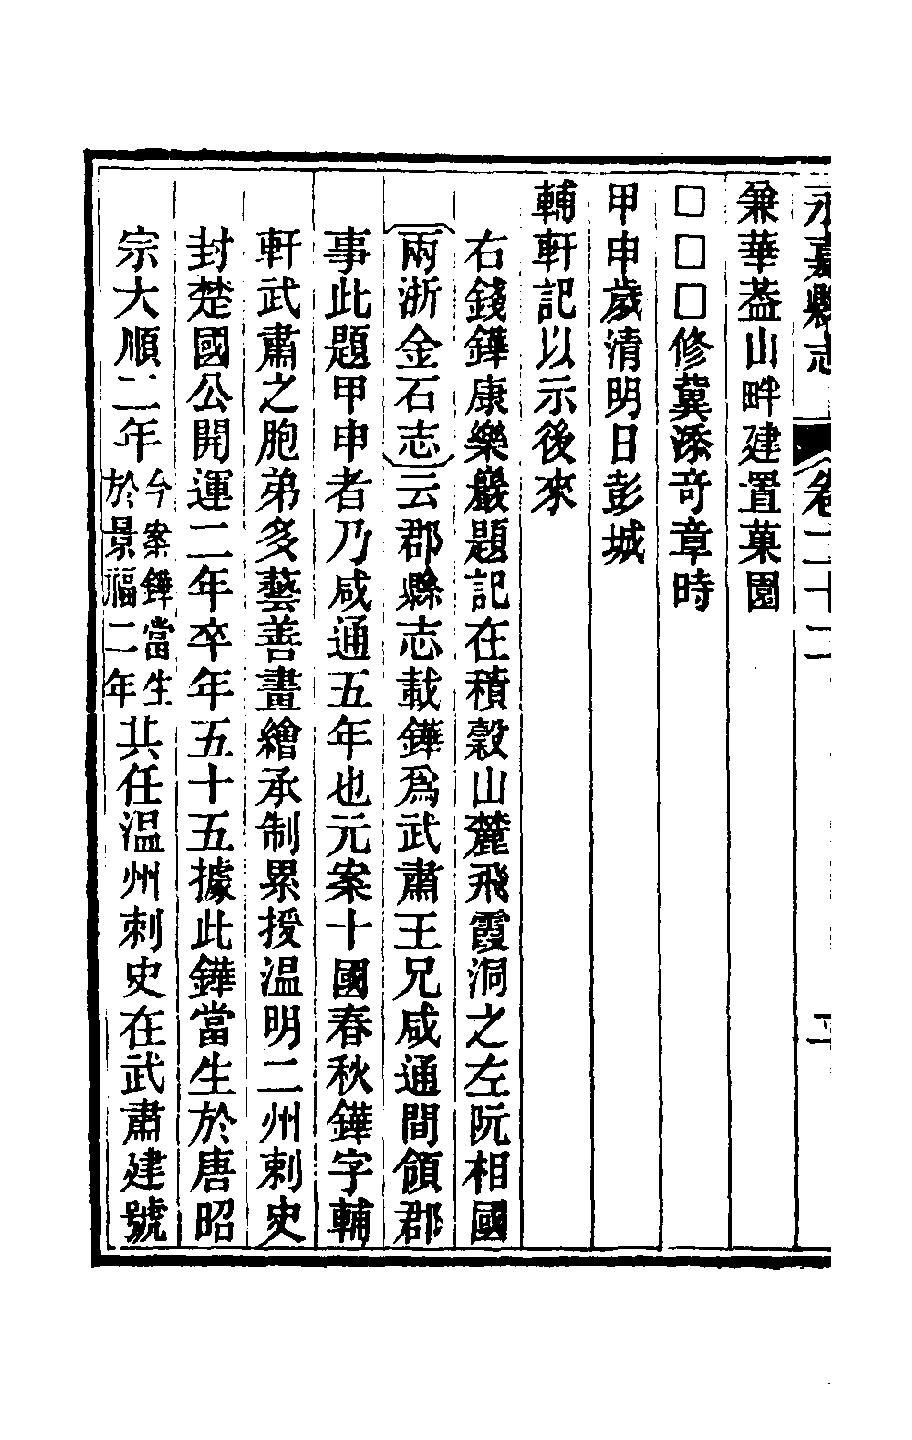 永嘉縣志 卷二十二
兼華葢山畔建置菓園
□□□修冀添竒章時
甲申歲清明日彭城
輔軒記以示後來
右錢鏵康樂巖題記在積穀山麓飛霞洞之左阮相國
兩浙金石志云郡縣志載鏵爲武肅王兄咸通間領郡
事此題甲申者乃咸通五年也元案十國春秋鏵字輔
軒武肅之胞弟多藝善畫繪承制累授温明二州刺史
封楚國公開運二年卒年五十五據此鏵當生於唐昭
宗大順二年今案鏵當生於景福二年其任温州刺史在武肅建號